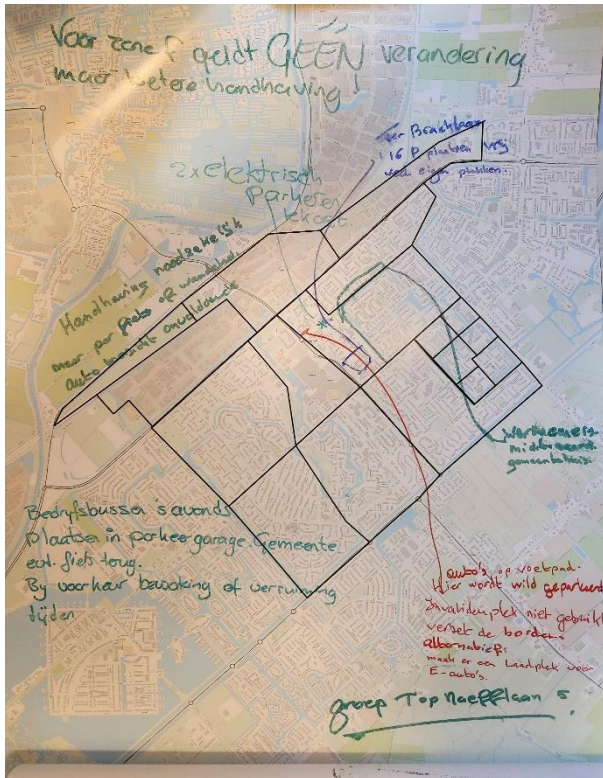 Voor zone P geldt GEEN verandering
maar betere handhaving!
ver Braaklaan
16 P plaatsen vrij
2x elektrisch
Parkeren
Handhaving noodzakelijk
meer per fiets of wandelend
auto toezicht onvoldoende
Werknemers
gemeentehuis
Bedrijfsbussen 's avonds
Plaatsen in parkeergarage Gemeente
evt. fiets terug.
By voorkeur bewoking of verruiming
tijden
auto's op voetpad.
Hier wordt wild geparkeerd
Invalidenplek niet gebruikt
verzet de borden.
alternatief:
maak er een Laadplek voor
E-auto's.
groep Top Naefflaan 5